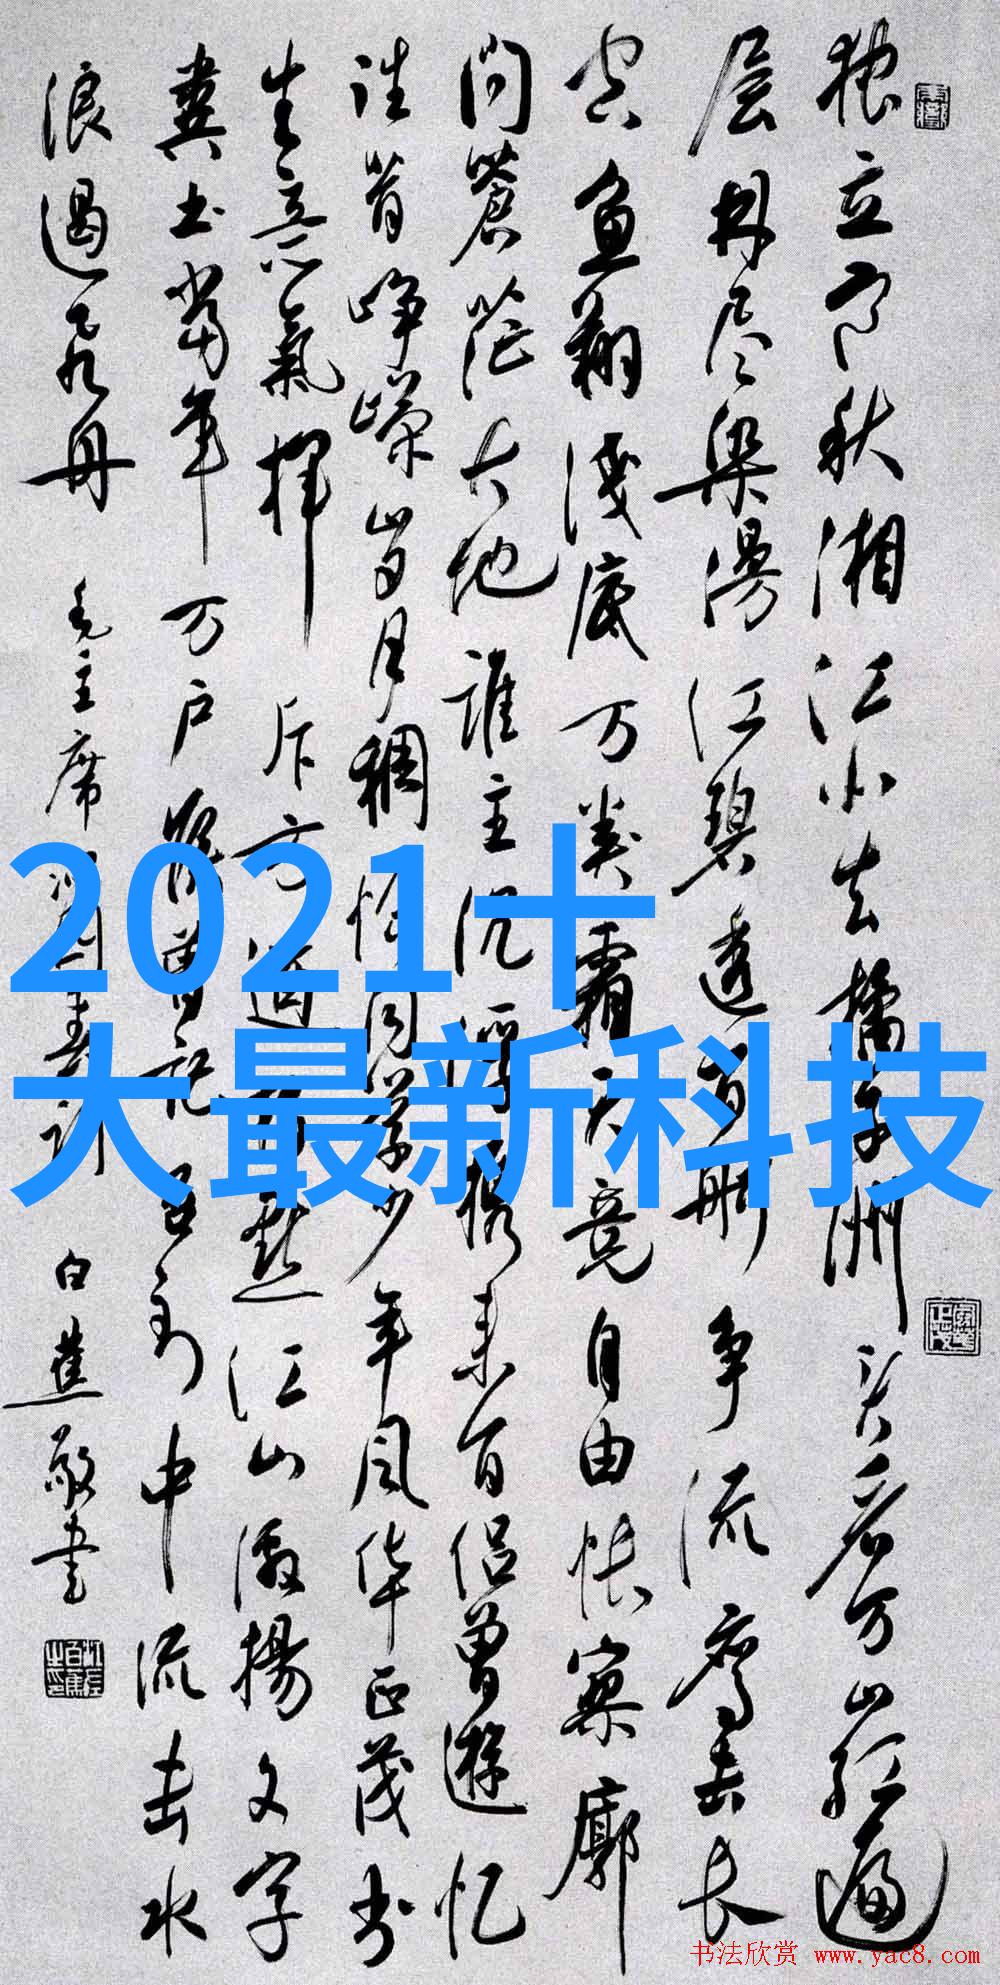 独立寒秋湘江北去橘子洲头看万山红遍
层林尽染漫江碧透百舸争流鹰击长
空鱼翔淺底万类霜天竞自由怅寥廓
问蒼茫大地誰主沉浮携来百侣曾遊忆
往昔峥嵘岁月稠恰同学少年风华正茂书
生意氣挥斥方遒指点江山激揚文字
粪土当年万户侯曾记否到中流击水
浪遏飞舟 毛主席沁园春词 白蕉敬書
2021十
大最新科技
书法欣赏 www.yac8.com